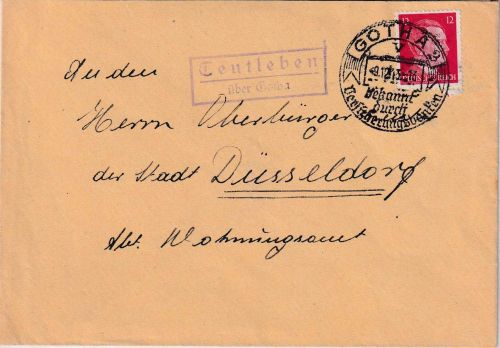 An den
Teutleben
über Gotha
GOTHA 2
bekannt
durch
Versicherungsbanken
12
12
Herrn Oberbürger
der Stadt Düsseldorf
Abt. Wohnungsamt